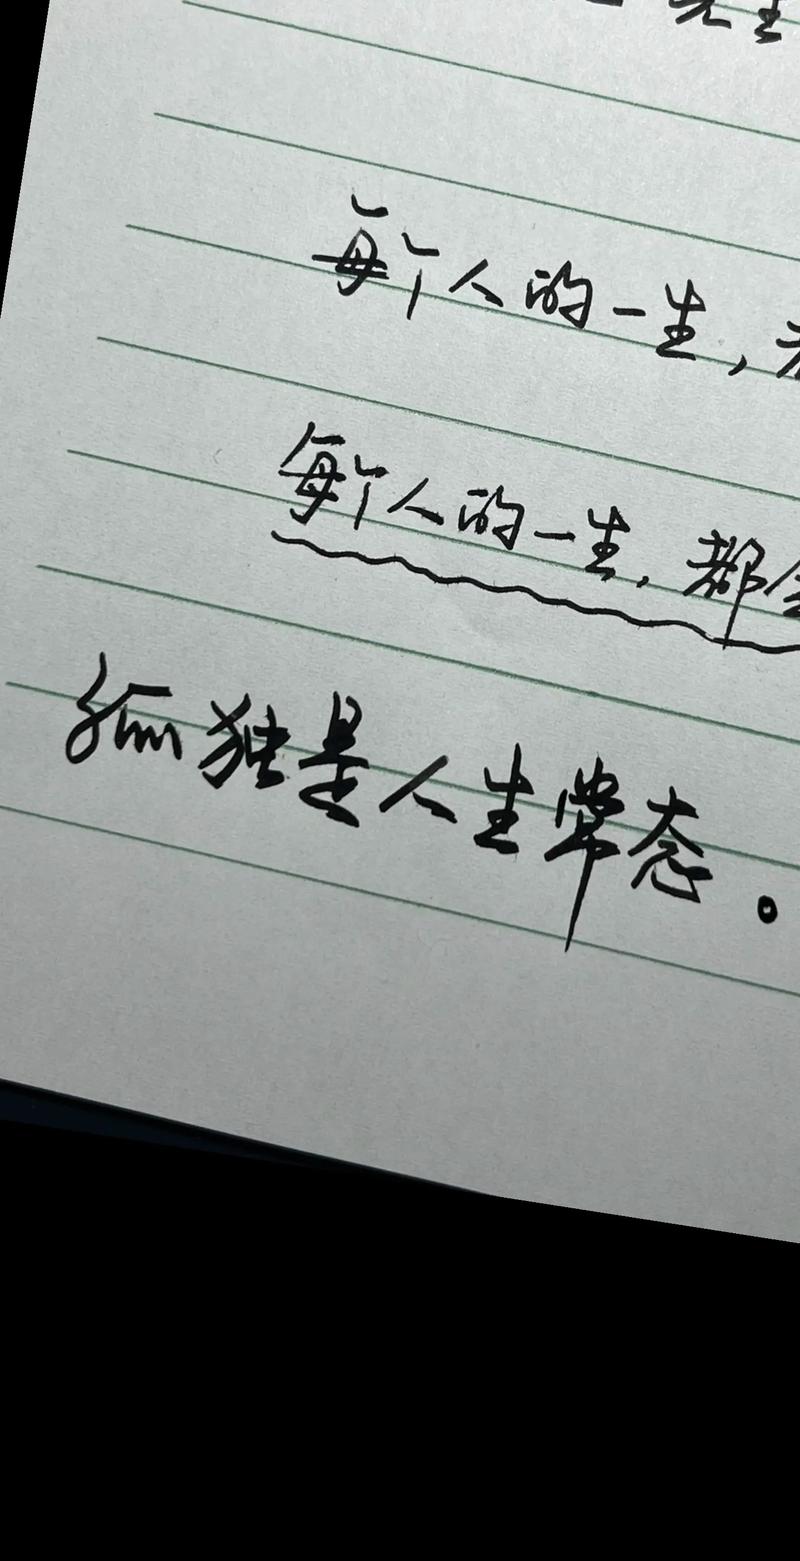 每个人的一生，
每个人的一生，都会
孤独是人生常态。